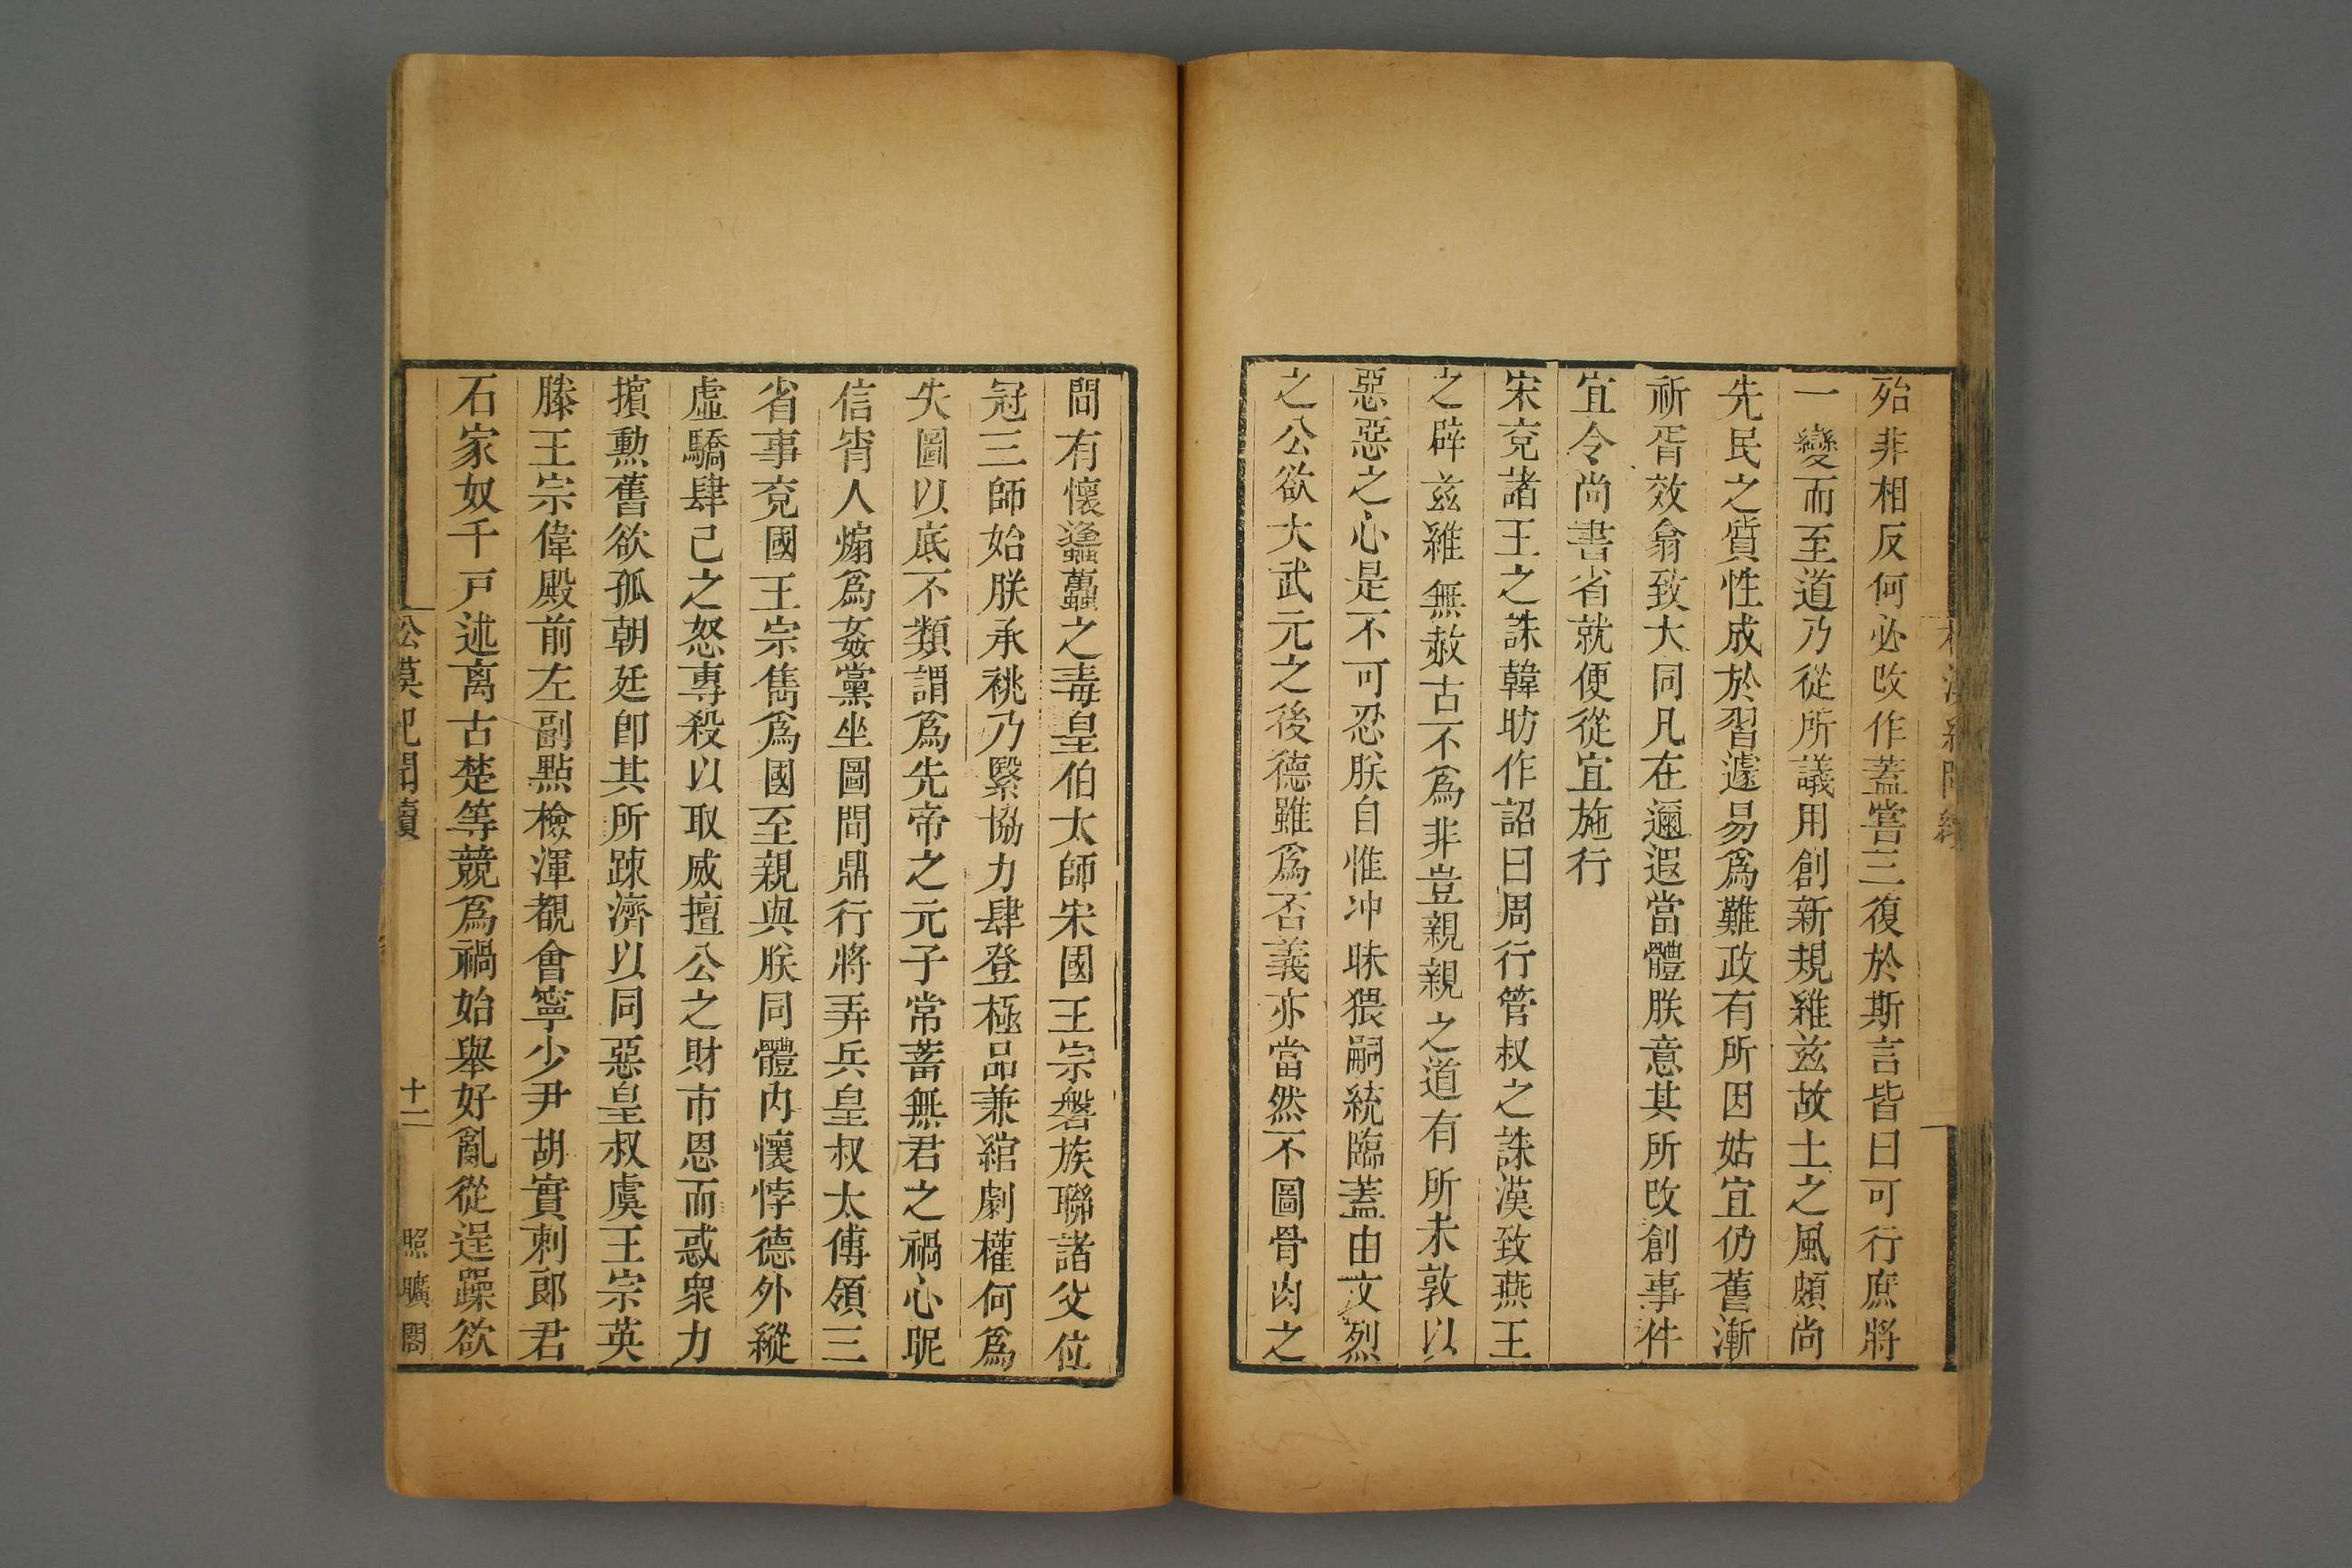 殆非相反何必改作蓋嘗三復於斯言皆曰可行庶將
一變而至道乃從所議用創新規維兹故土之風頗尚
先民之質性成於習遽易爲難政有所因姑宜仍舊漸
祈胥效翕致大同凡在邇遐當體朕意其所改創事件
宜令尚書省就便從宜施行
宋兖諸王之誅韓昉作詔曰周行管叔之誅漢致燕王
之辟兹維無赦古不爲非豈親親之道有所未敦以
惡惡之心是不可忍朕自惟冲昧猥嗣統臨蓋由文烈
之公欲大武元之後德雖爲否義亦當然不圖骨肉之
間有懷蠭蠆之毒皇伯太師宋國王宗磐族聯諸父位
冠三師始朕承祧乃繄協力肆登極品兼綰劇權何爲
失圖以底不類謂爲先帝之元子常蓄無君之禍心昵
信宵人煽爲姦黨坐圖問鼎行將弄兵皇叔太傅領三
省事兖國王宗雋爲國至親與朕同體内懷悖德外縱
虛驕肆己之怒專殺以取威擅公之財市恩而惑衆力
擯勲舊欲孤朝廷即其所踈濟以同惡皇叔虞王宗英
滕王宗偉殿前左副點檢渾覩會寧少尹胡實剌郎君
石家奴千戸述离古楚等競爲禍始舉好亂從逞躁欲
松漠紀聞續
十一
照曠閣